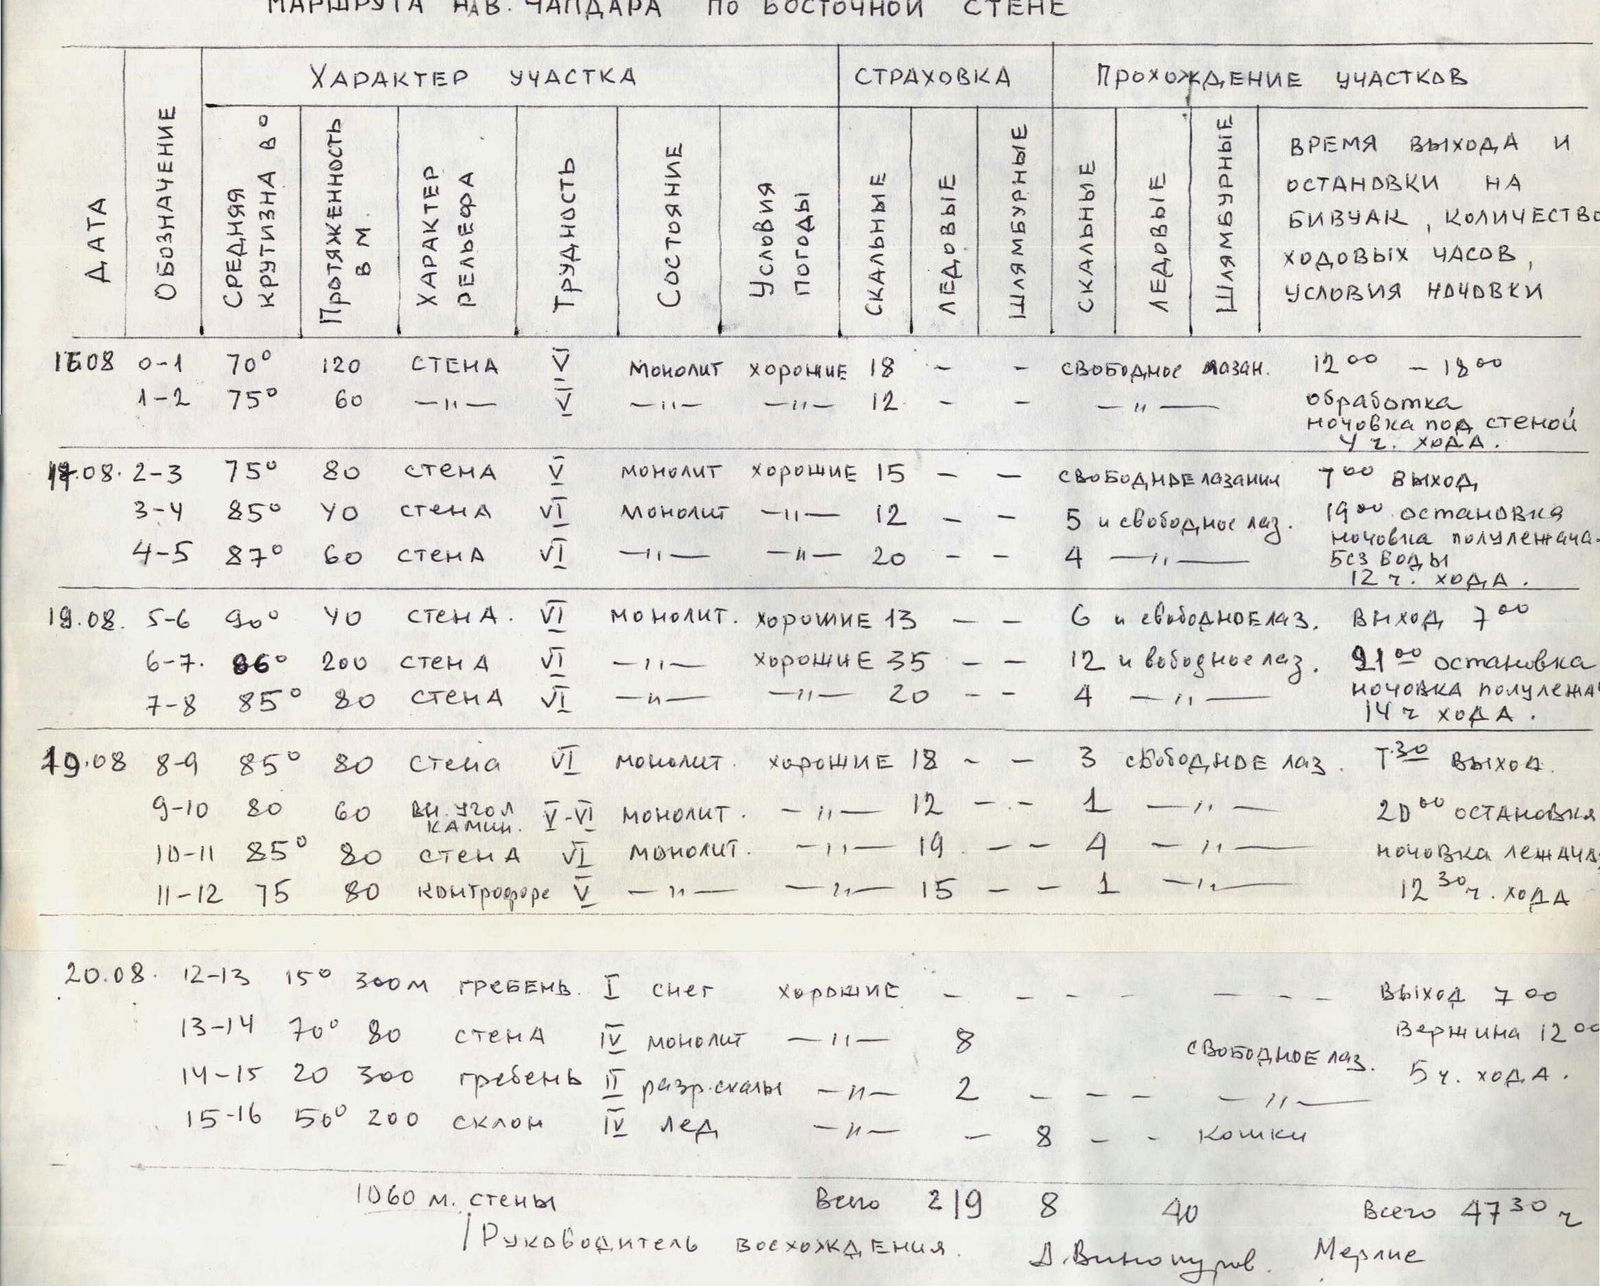 МАРШРУТА НА В. ЧАПДАРА ПО ВОСТОЧНОЙ СТЕНЕ
ДАТА
ОБОЗНАЧЕНИЕ
ХАРАКТЕР УЧАСТКА
СТРАХОВКА
ПРОХОЖДЕНИЕ УЧАСТКОВ
СРЕДНЯЯ КРУТИЗНА В °
ПРОТЯЖЕННОСТЬ В М.
ХАРАКТЕР РЕЛЬЕФА
ТРУДНОСТЬ
СОСТОЯНИЕ
УСЛОВИЯ ПОГОДЫ
СКАЛЬНЫЕ
ЛЕДОВЫЕ
ШЛЯМБУРНЫЕ
СКАЛЬНЫЕ
ЛЕДОВЫЕ
ШЛЯМБУРНЫЕ
ВРЕМЯ ВЫХОДА И
ОСТАНОВКИ НА
БИВУАК, КОЛИЧЕСТВО
ХОДОВЫХ ЧАСОВ,
УСЛОВИЯ НОЧОВКИ
08 0-1 70° 120 СТЕНА V МОНОЛИТ ХОРОШИЕ 18 - - СВОБОДНОЕ ЛАЗАН. 12 00 - 18 00
1-2 75° 60 —"— VI —"— —"— 12 - - —"— обработка
ночовка под стеной
4 ч. ХОДА.
.08. 2-3 75° 80 СТЕНА V МОНОЛИТ ХОРОШИЕ 15 - - СВОБОДНОЕ ЛАЗАНИИ 7 00 ВЫХОД
3-4 85° 40 СТЕНА VI МОНОЛИТ —"— 12 - - 5 и свободное лаз. 19 00 остановка
ночовка полулежача.
4-5 87° 60 СТЕНА VI —"— —"— 20 - - 4 —"— БЕЗ ВОДЫ
12 ч. ХОДА.
19.08. 5-6 90° 40 СТЕНА. VI МОНОЛИТ. ХОРОШИЕ 13 - - 6 и свободное лаз. ВЫХОД 7 00
6-7. 86° 200 СТЕНА VI —"— ХОРОШИЕ 35 - - 12 и вободное лаз. 21 00 остановка
7-8 85° 80 СТЕНА VI —"— —"— 20 - - 4 —"— ночовка полулежа
14 ч ХОДА.
19.08 8-9 85° 80 Стена VI МОНОЛИТ. ХОРОШИЕ 18 - - 3 СВОБОДНОЕ ЛАЗ. 7.30 ВЫХОД.
9-10 80 60 ВН. УГОЛ КАМИН. V-VI МОНОЛИТ. —"— 12 - - 1 —"— 20 00 остановка
10-11 85° 80 СТЕНА VI МОНОЛИТ. —"— 19 - - 4 —"— ночовка лежача
11-12 75 80 контрфорс V —"— —"— 15 - - 1 —"— 12 30 ч. ХОДА
20.08. 12-13 15° 300м ГРЕБЕНЬ. I СНЕГ ХОРОШИЕ - - - - - - - ВЫХОД 7 00
13-14 70° 80 СТЕНА IV МОНОЛИТ —"— 8 СВОБОДНОЕ ЛАЗ. Вершина 12 00
14-15 20 300 гребень II разр.скалы —"— 2 - - - —"— 5 ч. ХОДА.
15-16 50° 200 СКЛОН IV ЛЕД —"— - 8 - - КОШКИ
1060 м. стены Всего 219 8 40 Всего 47 30 ч
/Руководитель восхождения. А.Винокуров. Мерлис